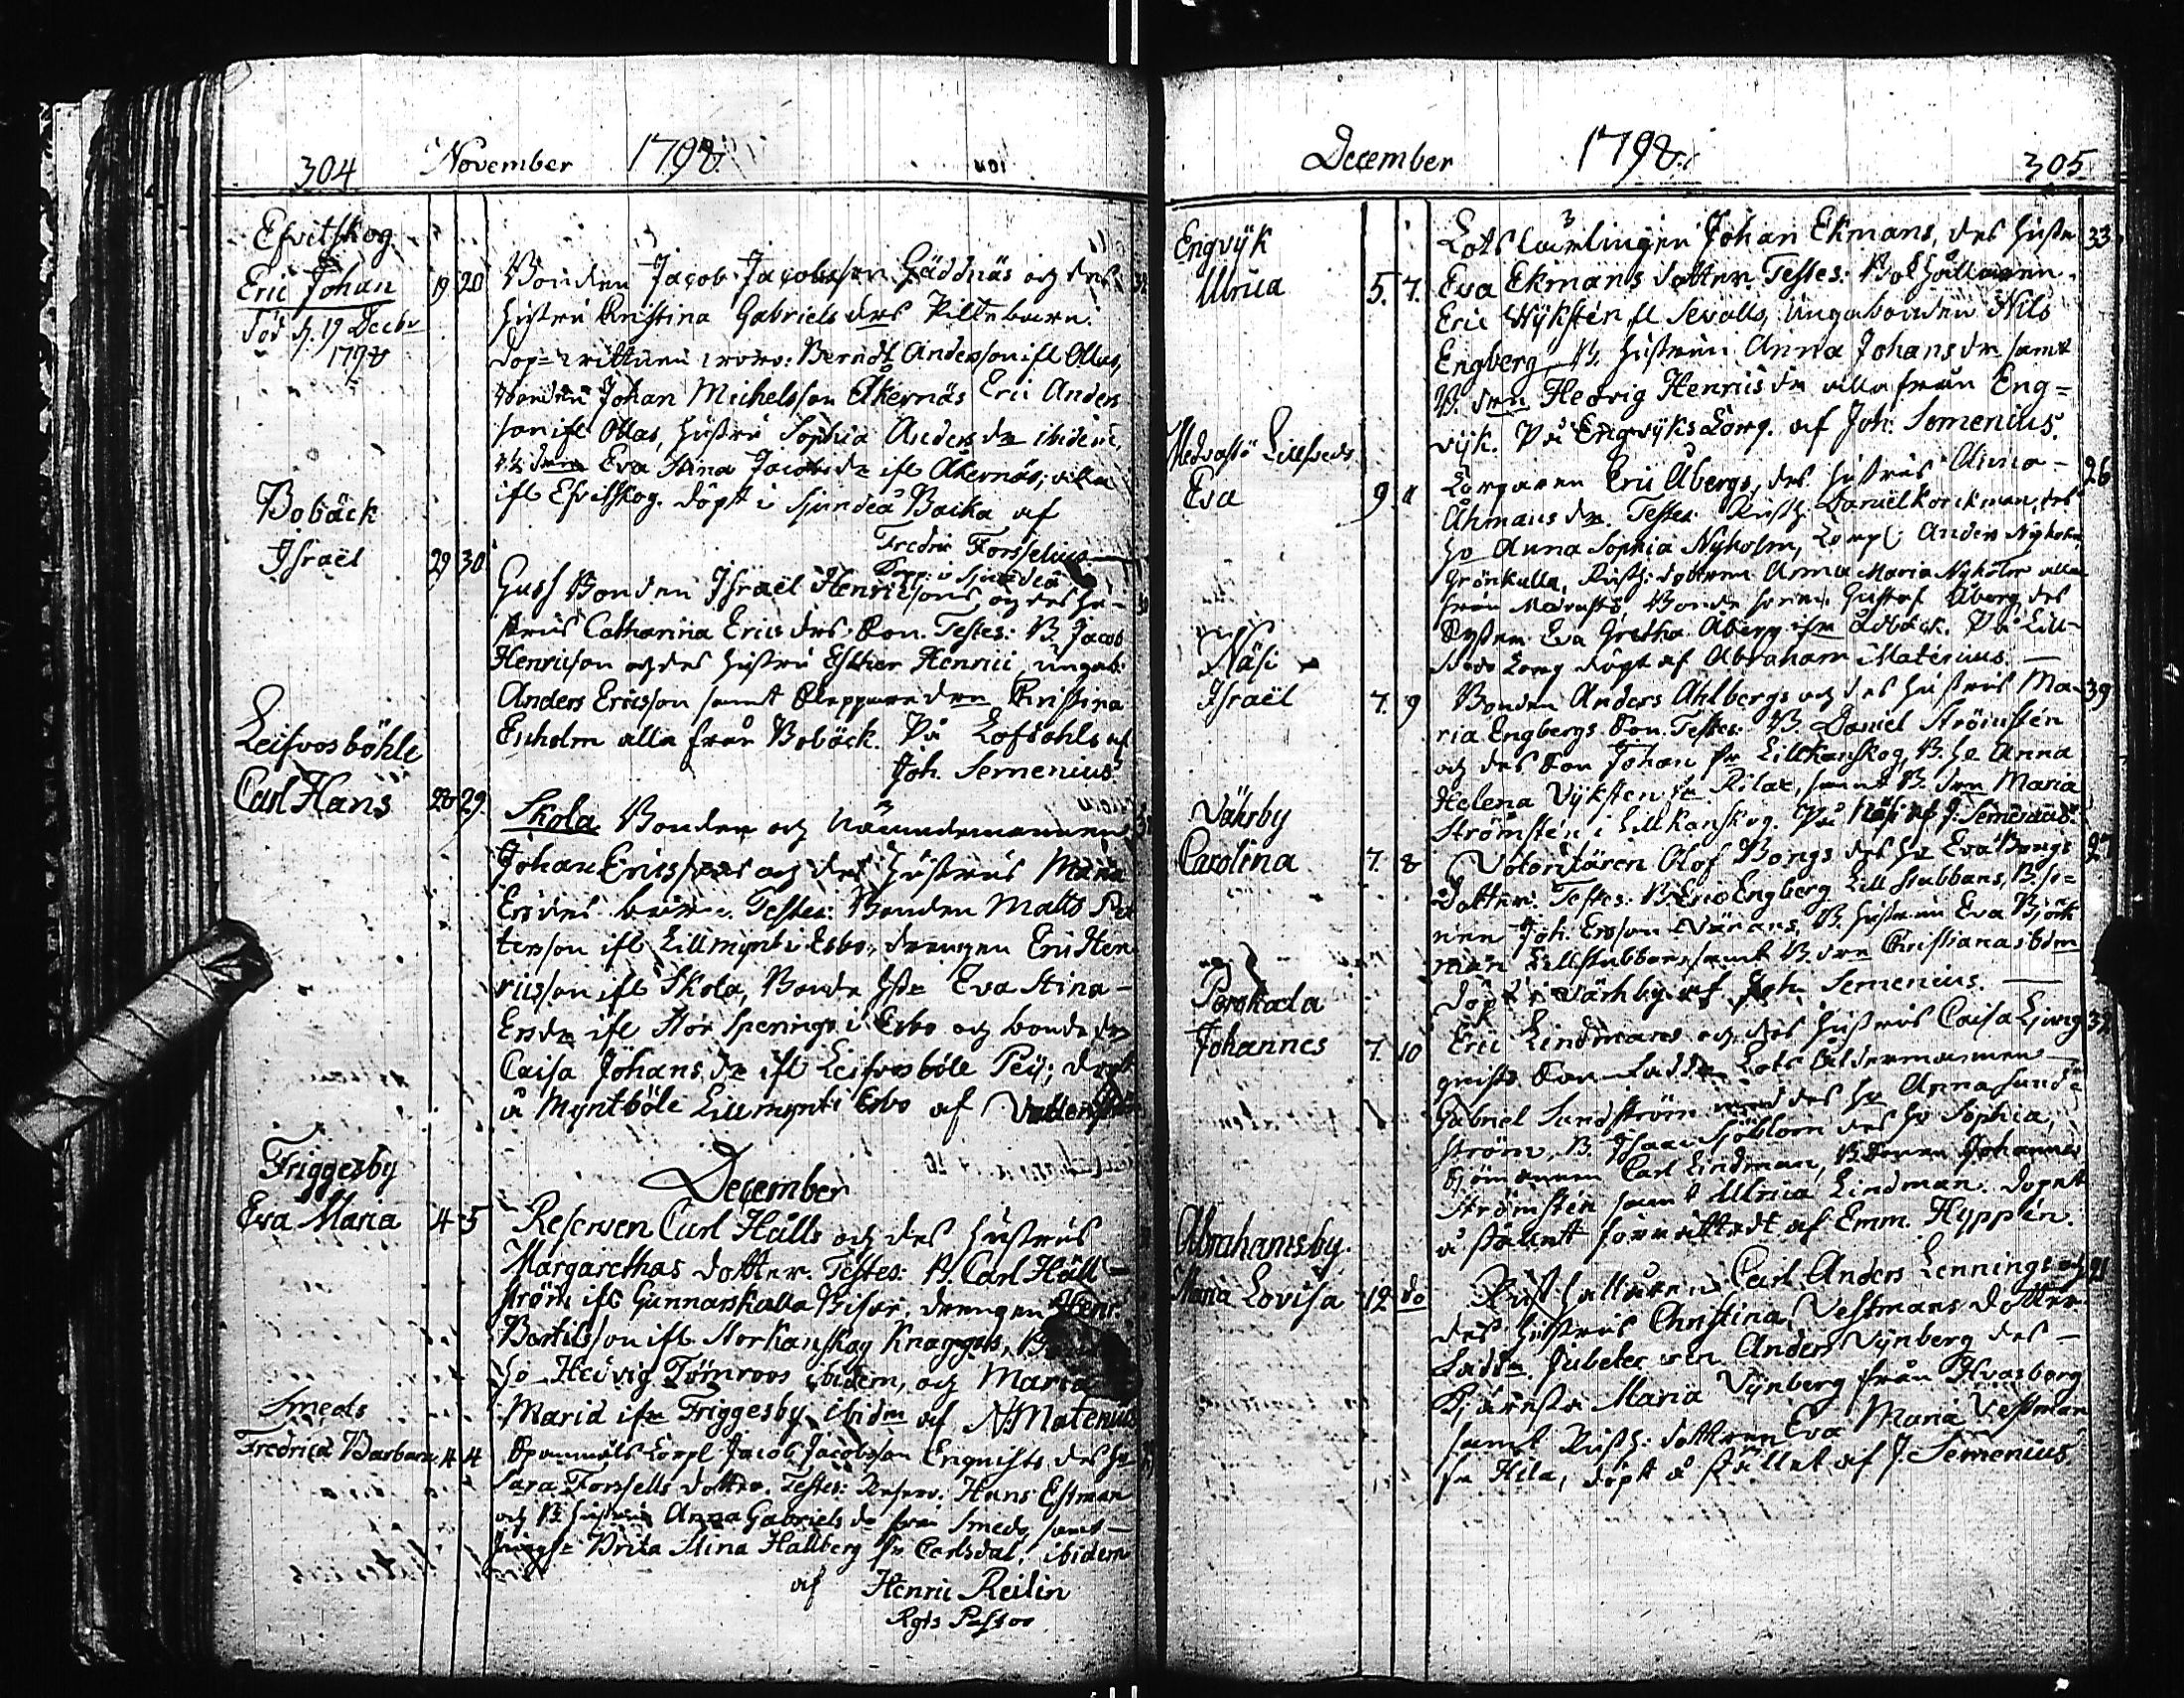 304 November 1798.
Esvitskog
Eric Johan 19 20 Bonden Jacob Jacobsson Gäddnäs och des
död d. 19 Decbr hustru Kristina Gabriels drs Piltebarn.
1798 Dop-vittnen voro: Berndt Andersson ifr Ollas,
bonden Johan Michelsson Åkernäs Eric Anders
son ifr Ollas, hustru Sophia Anders dr ibidem,
Eva Stina Jacobs dr ifr Åkernäs, alla
ifr Esvitskog. döpt i Sjundeå Baika af
Fredric Forsselius
i Sjundeå
Bobäck
Israël 29 30 Bonden Israël Henricsons och des hu-
strus Catharina Erics drs Son. Testes: B. Jacob
Henricson och des hustru Esther Henrici, ungab.
Anders Ericsson samt Skeppare drn Kristina
Ekholm alla från Bobäck. På Lofsdahls af
Joh. Semenius.
Leifvosböhle
Carl Hans 28 29. Skola Bonden och Nämndemannens
Johan Erissons och des hustrus Maria
Ersdrs barn. Testes: Bonden Matts Pet
tersson ifr Lillmynti Esbo, drengen Eric Hen
ricsson ifr Skola, Bonde hstr Eva Stina
Ersdr ifr Stor Sperrings i Esbo och bonde dr
Caisa Johans dr ifr Leifvosböle Peij; döpt
å Myntböle Lillmynti Esbo af
December
Friggesby
Eva Maria 4 5 Reserven Carl Hälls och des hustrus
Margarethas dotter. Testes: B. Carl Häll-
ström ifr Gunnarskulla Bisar, drengen Henr.
Bertilsson ifr Storkanskog Knagges, B
ho Hedvig Törnroos ibidem, och Maria
Maria ifr Friggesby ibidm af N. Matenius
Smeds
Fredrica Barbara 4 4 Corpl Jacob Jacobsson Enquists des ho
Sara Forssells dotter. Testes: Reserv. Hans Estman
och B. hustrun Anna Gabriels dr från Smeds, samt
Brita Stina Hallberg fr Carlsdal, ibidem
af Henric Reilin
Rgts Pastor
December 1798. 305
Engvijk Lots Lärlingen Johan Ekmans, des hustr 33
Ulrica 5. 7. Eva Ekmans dotter. Testes: Bokhållaren
Eric Wijkstén, fr Sevalls, Ungabonden Nils
Engberg, B. hustrun Anna Johansdr samt
B. drn Hedvig Henricsdr alla från Eng=
vijk. På Engvijks Torg. af Joh: Semenius.
Medvastö Lillsveds
Eva 9. 11 Torparen Eric Åbergs, des hustrus Anna 26
Åhmans dr. Testes: Rusth. Daniel Korckman, des
ho Anna Sophia Nyholm, Torp: Anders Nyholm
Grönkulla, Rusth: dottren Anna Maria Nyholm alla
från Medvastö Bonde sonen Gustaf Åberg, des
Syster Eva Gretha Åberg ifr Edbäck. På Lill-
sveds Torg döpt af Abraham Matenius.
Näsi
Israël 7. 9 Bonden Anders Ahlbergs och des hustrus Ma- 39
ria Engbergs Son. Testes: B. Daniel Strömstén
och des Son Johan fr Lillkanskog, B. ho Anna
Helena Vijkstén fr Rilax, samt B. drn Maria
Strömstén i Lillkanskog. På Näsi af J. Semenius.
Vährby
Carolina 7. 8 Volontären Olof Bongs des ho Eva Bongs 27
Dotter. Testes: B. Eric Engberg Lill stubbans, B. so=
nen Joh. Ersson Wärans, B. hustrun Eva Björk
man Lillstubbans samt B. drn Christiana ibdm
döpt i Värhby af Joh. Semenius.
Porkala
Johannes 7. 10 Eric Lindmans och des hustrus Caisa Ljung 32
qvists Son. Faddr Lots Åldermannen
Gabriel Sundström med des ho Anna Sund=
ström, B. Isaac Sjöblom des ho Sophia,
Sjömannen Carl Lindman, B. Sonen Johannes
Strömstén samt Ulrica Lindman. dopet
å stället förrättadt af Emm. Hyppén.
Abrahamsby
Maria Lovisa 12 do Rusthållaren Carl Anders Lennings och 21
des hustrus Christina Vestmans dotter
Faddr. Anders Vijnberg des
Kjäresta Maria Vijnberg från Hvasborg
samt Rusth: dottren Eva Maria Vestman
fr Hila, döpt å stället af J. Semenius